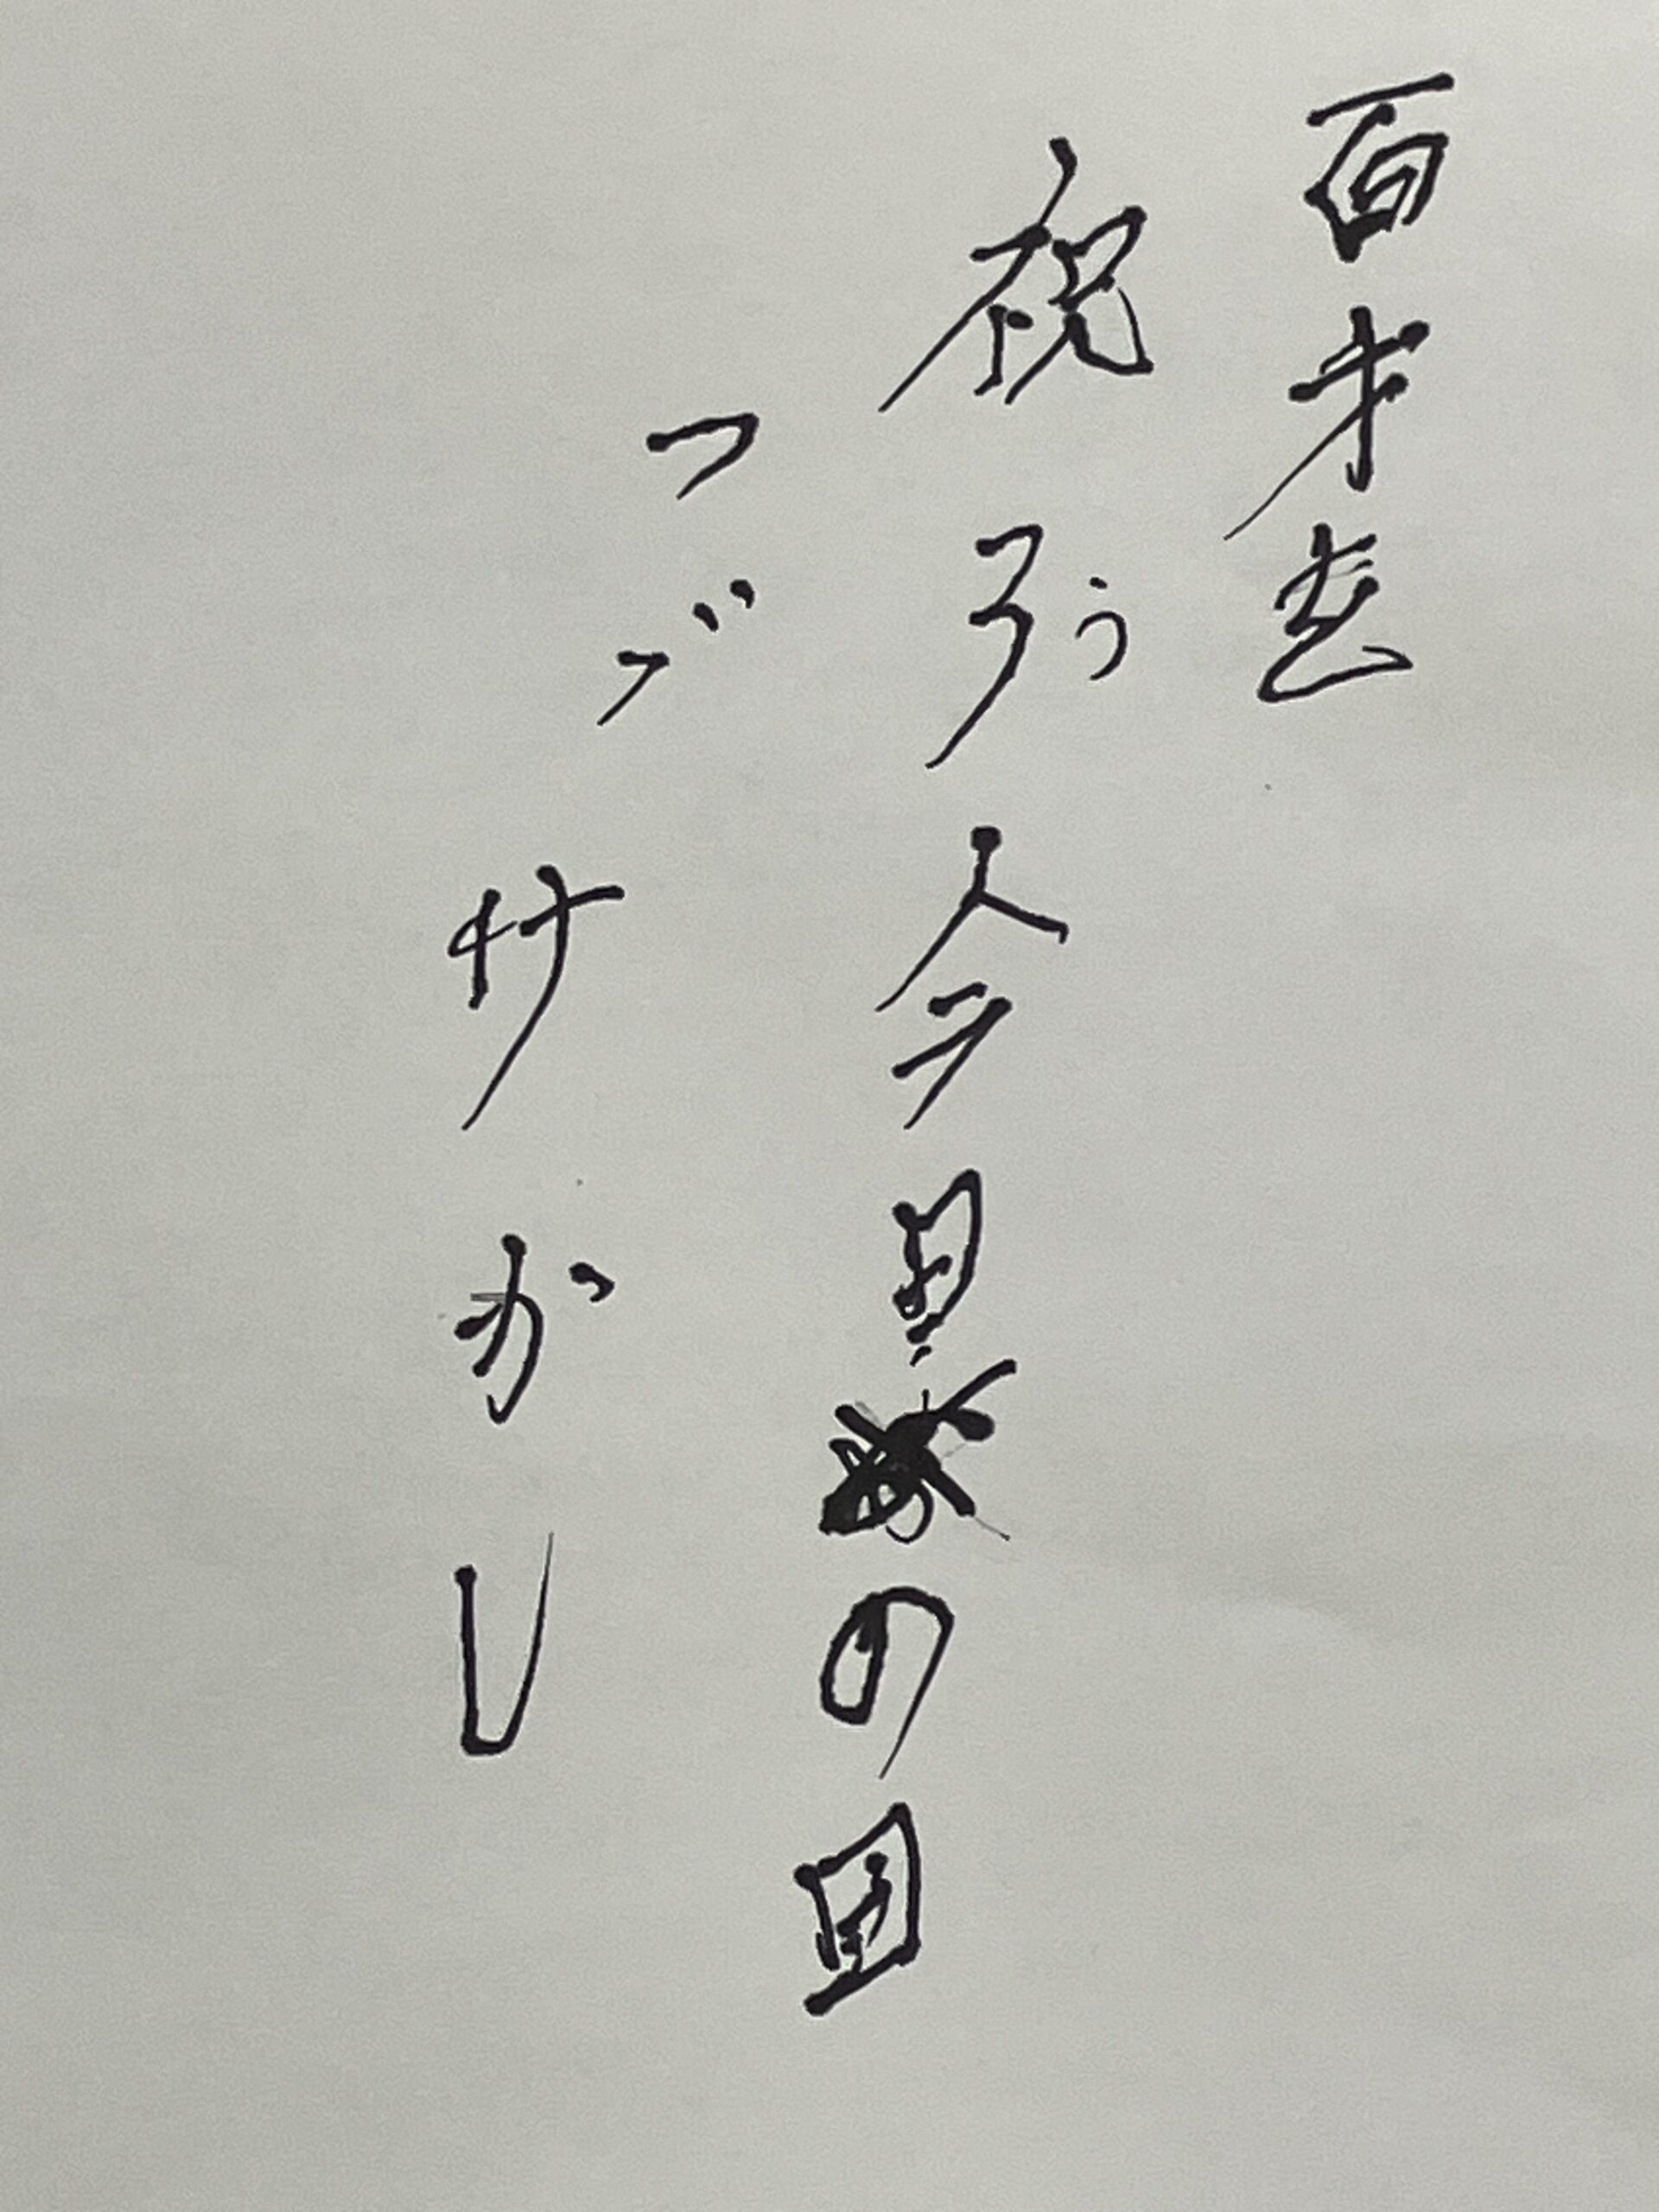 百才を
祝う今日の日
つゞけがし